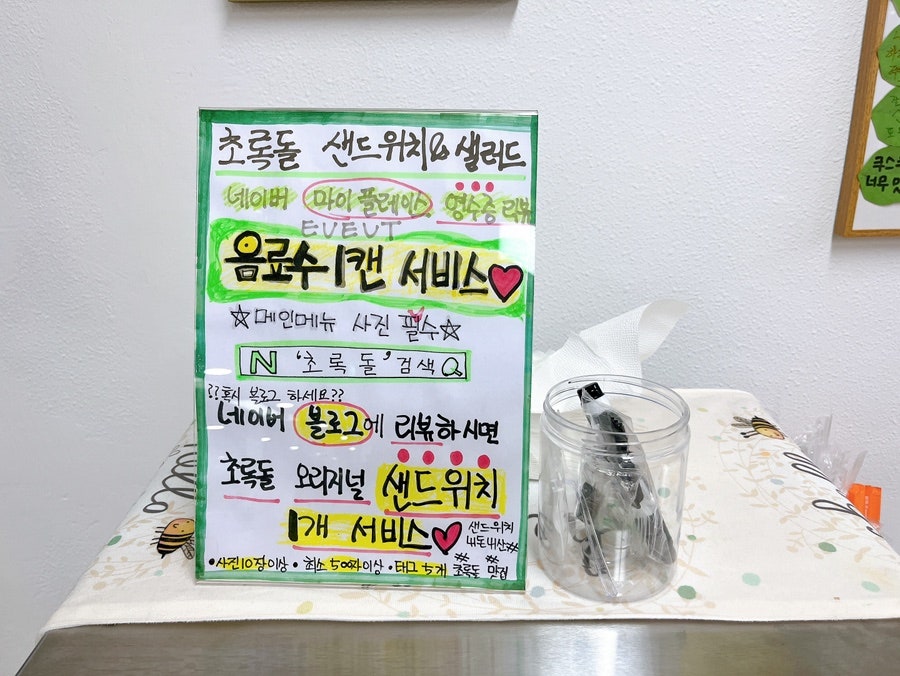 초록돌 샌드위치 & 샐러드
네이버 마이 플레이스 영수증 리뷰
EVEUT
음료수 1캔 서비스♥
☆메인메뉴 사진 필수☆
N '초록돌' 검색
??혹시 블로그 하세요??
네이버 블로그에 리뷰하시면
초록돌 오리지널 샌드위치
1개 서비스♥
샌드위치
내돈내산#
•사진10장이상 •최소 500자이상 •태그 5개 #초록돌 #맛집
너무